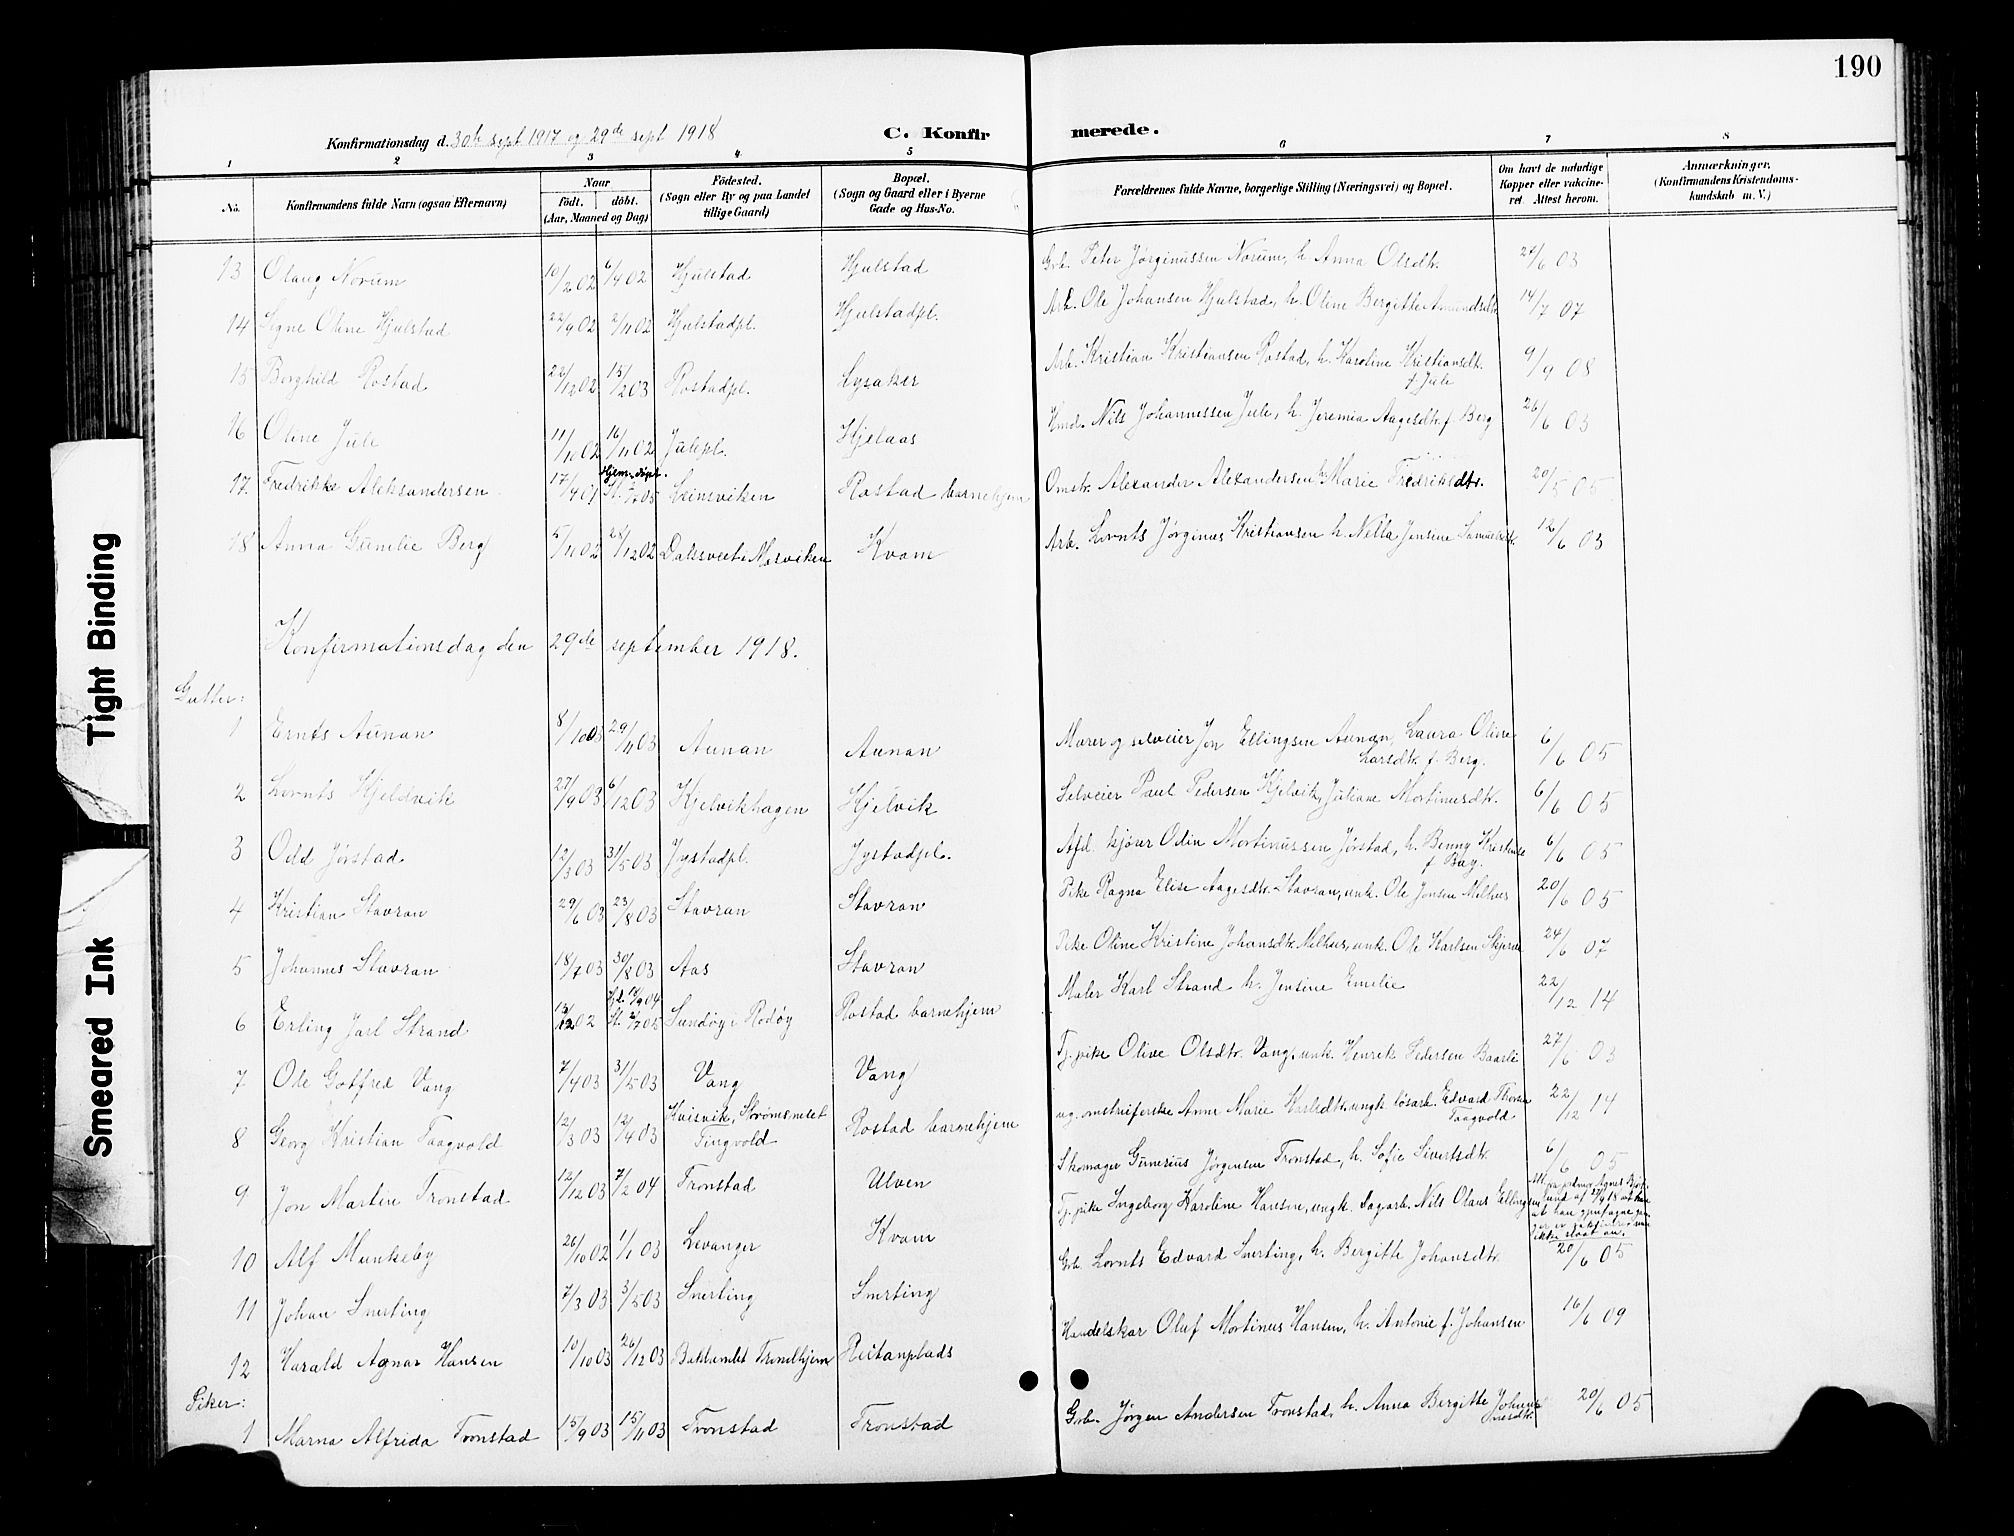 190
Konfirmationsdag d. 30te sept 1917 og 29de sept 1918
C. Konfirmerede.
1 2 3 4 5 6 7 8
No.
Konfirmandens fulde Navn (ogsaa Efternavn)
Naar
födt. döbt.
(Aar, Maaned og Dag)
Födested.
(Sogn eller By og paa Landet
tillige Gaard)
Bopæl.
(Sogn og Gaard eller i Byerne
Gade og Hus-No.
Forældrenes fulde Navne, borgerlige Stilling (Næringsvei) og Bopæl.
Om havt de naturlige
Kopper eller vakcine-
ret Attest herom.
Anmærkninger.
(Konfirmandens Kristendoms-
kundskab m. V.)
13 Olaug Norum 10/2 02 6/4 02 Hjulstad Hjulstad Grb. Peter Jørginussen Norum, h. Anna Olsdtr. 24/6 03
14 Signe Oline Hjulstad 22/9 02 2/11 02 Hjulstadpl. Hjulstadpl. Arb. Ole Johansen Hjulstad, h. Oline Bergitte Amundsdtr. 14/7 07
15 Borghild Rostad 22/12 02 15/2 03 Rostadpl. Lysaker Arb. Kristian Kristiansen Rostad, h. Karoline Kristiansdt.
f. Jule 9/9 08
16 Oline Jule 11/10 02 16/11 02 Julepl. Hjelaas Hmd. Nils Johannessen Jule, h. Jeremia Aagesdtr. f. Berg 26/6 03
Hjem. døpt.
17. Fredrikke Aleksandersen 17/4 01 St. 2/7 05 Leinsviken Rostad barnehjem Omstr. Alexander Alexandersen h. Marie Fredriksdtr. 20/5 05
18 Anna Gunelie Berg 5/11 02 28/12 02 Dalsveet Mosviken Kvam Arb. Lornts Jørginus Kristiansen h. Nella Jensine Samuelsdtr. 12/6 03
Konfirmationsdag den 29de september 1918.
Gutter:
1 Ernts Aunan 8/10 03 29/11 03 Aunan Aunan Murer og selveier Jon Ellingsen Aunan, Laura Oline
Larsdtr. f. Berg. 6/6 05
2 Lornts Hjeldvik 27/9 03 6/12 03 Kjelvikhagen Hjelvik Selveier Paul Pedersen Kjelvik, Juliane Mortinusdtr. 6/6 05
3 Odd Jørstad 12/3 03 31/5 03 Jystadpl. Jystadpl. Afd. kjører Odin Mortinussen Jørstad, h. Benny Kristense
f. Bay. 6/6 05
4 Kristian Stavran 29/6 03 23/8 03 Stavran Stavran Pike Ragna Elise Aagesdtr. Stavran, unk. Ole Jonsen Milhus 20/6 05
5 Johannes Stavran 18/7 03 30/8 03 Aas Stavran Pike Oline Kristine Johansdtr. Milhus, unk. Ole Karlsen Skjerve 24/6 07
Hd. 18/9 04
6 Erling Jarl Strand 13/12 02 St. 2/7 05 Sundøy i Rødøy Rostad barnehjem Maler Karl Strand h. Jensine Emelie 22/12 14
7 Ole Gotfred Vang 7/4 03 31/5 03 Vang Vang Tj. pike Olive Olsdtr. Vang, unk. Henrik Pedersen Baarli 27/6 03
8 Georg Kristian Taagvold 12/3 03 12/4 03 Kvisvik, Strømsneset
Tingvold Rostad barnehjem ug. omstreiferske Anne Marie Karlsdtr. ungk. løsarb. Edvard Thorsen
Taagvold 22/12 14
9 Jon Martin Tronstad 12/12 03 7/2 04 Tronstad Ulven Skomager Gunerius Jørgensen Tronstad, h. Sofie Sivertsdtr. 6/6 05
10 Alf Munkeby 26/10 02 1/1 03 Levanger Kvam Tj. pike Ingeborg Karoline Hansen, ungk. Sagarb. Nils Olaus Ellingsen
11 Johan Snerting 7/3 03 3/5 03 Snerting Snerting Grb. Lornts Edvard Snerting, h. Bergitte Johansdtr. 20/6 05
12 Harald Agnar Hansen 10/10 03 26/12 03 Baklandet Trondhjem Reitanplads Handelskar Oluf Mortinus Hansen, h. Antonie f. Johansen 16/6 09
Piker:
1 Marna Alfrida Tronstad 15/9 03 15/11 03 Tronstad Tronstad Grb. Jørgen Andersen Tronstad, h. Anna Bergitte Johan-
nesdtr. 20/6 05
Tight Binding
Smeared Ink